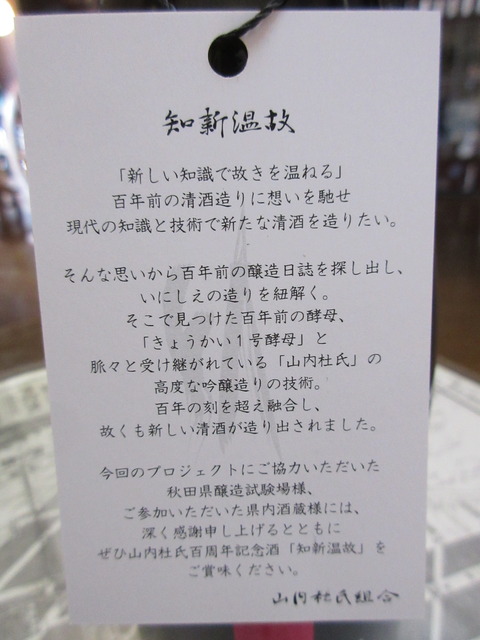 知新温故
「新しい知識で故きを温ねる」
百年前の清酒造りに想いを馳せ
現代の知識と技術で新たな清酒を造りたい。
そんな思いから百年前の醸造日誌を探し出し、
いにしえの造りを紐解く。
そこで見つけた百年前の酵母、
「きょうかい１号酵母」と
脈々と受け継がれている「山内杜氏」の
高度な吟醸造りの技術。
百年の刻を超え融合し、
故くも新しい清酒が造り出されました。
今回のプロジェクトにご協力いただいた
秋田県醸造試験場様、
ご参加いただいた県内酒蔵様には、
深く感謝申し上げるとともに
ぜひ山内杜氏百周年記念酒「知新温故」を
ご賞味ください。
山内杜氏組合